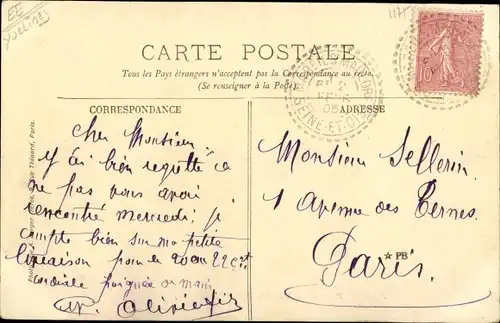 EE
YVELINES
1175
CARTE POSTALE
Tous les Pays étrangers n'acceptent pas la Correspondance au recto.
(Se renseigner à la Poste).
CORRESPONDANCE
ADRESSE
05
SEINE-ET-OISE
10
Cher Monsieur
J'ai bien regretté de
ne pas vous avoir
rencontré mercredi; je
compte bien sur ma petite
livraison pour le 20 ou 22 ct
cordiale poignée de main
Monsieur Sellerin
1 Avenue des Ternes
Paris.
PB
Thénard, Paris.